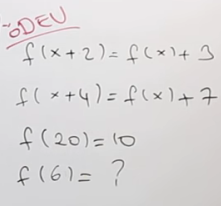 ÖDEV
f(x+2)=f(x)+3
f(x+4)=f(x)+7
f(20)=10
f(6)= ?